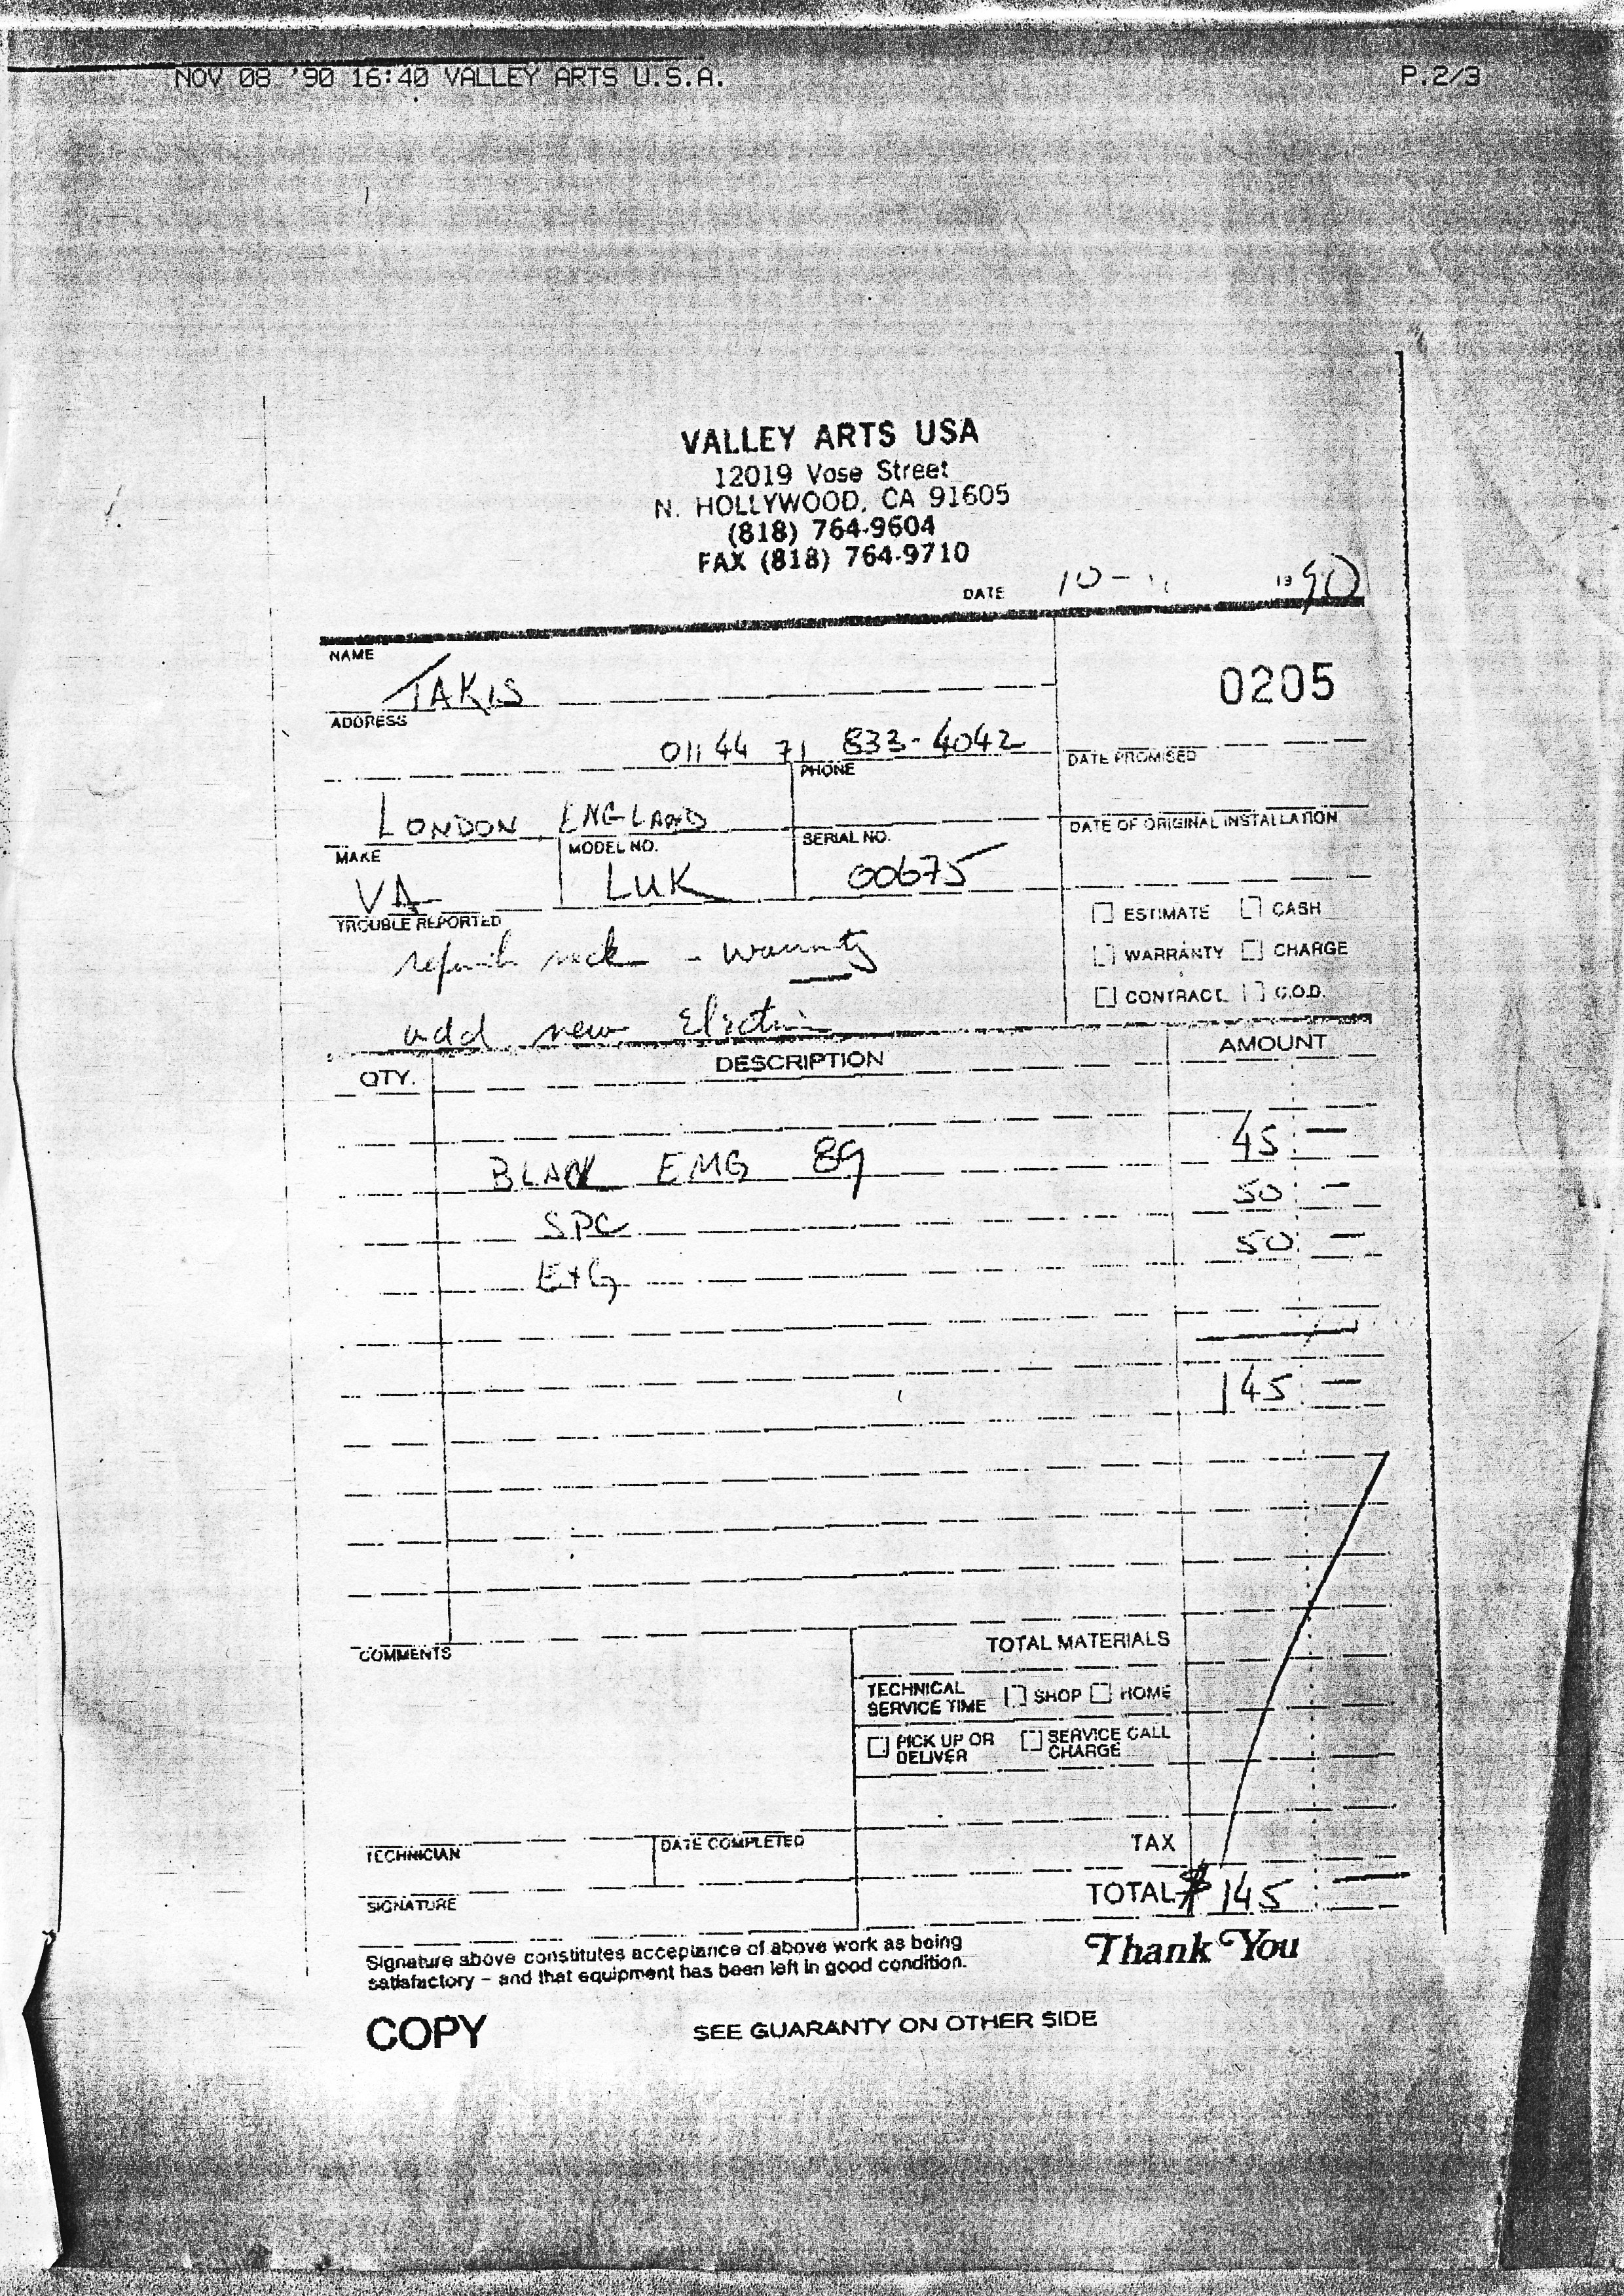 NOV 08 '90 16:40 VALLEY ARTS U.S.A. P.2/3
VALLEY ARTS USA
12019 Vose Street
N. HOLLYWOOD, CA 91605
(818) 764-9604
FAX (818) 764-9710
DATE 10- 19 90
NAME
TAKIS
0205
ADDRESS
011 44 71 833-4042
PHONE
DATE PROMISED
LONDON, ENGLAND
DATE OF ORIGINAL INSTALLATION
MAKE MODEL NO. SERIAL NO.
VA LUK 00675
TROUBLE REPORTED
ESTIMATE CASH
refinish neck - warranty
WARRANTY CHARGE
CONTRACT C.O.D.
add new
QTY. DESCRIPTION AMOUNT
BLACK EMG 89 45 —
SPC 50 —
EXG 50 —
145 —
COMMENTS
TOTAL MATERIALS
TECHNICAL SERVICE TIME SHOP HOME
PICK UP OR DELIVER SERVICE CALL CHARGE
TECHNICIAN DATE COMPLETED
TAX
SIGNATURE
TOTAL $145 —
Signature above constitutes acceptance of above work as being
satisfactory – and that equipment has been left in good condition.
Thank You
COPY SEE GUARANTY ON OTHER SIDE